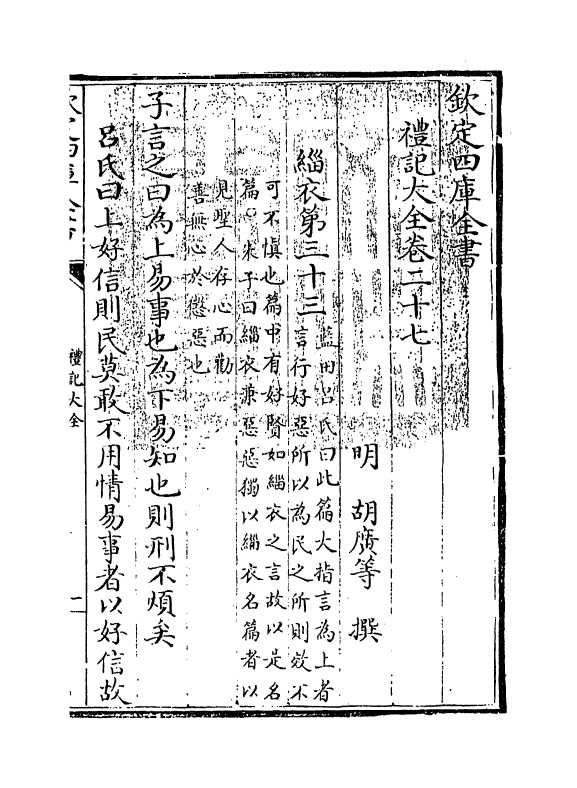 欽定四庫全書
禮記大全卷二十七
明 胡廣等 撰
緇衣第三十三
藍田呂氏曰此篇大指言為上者
言行好惡所以為民之所則效不
可不慎也篇中有好賢如緇衣之言故以是名
篇○朱子曰緇衣兼惡惡獨以緇衣名篇者以
見聖人存心而勸
善無心於懲惡也
子言之曰為上易事也為下易知也則刑不煩矣
呂氏曰上好信則民莫敢不用情易事者以好信故
欽定四庫全書
禮記大全
一